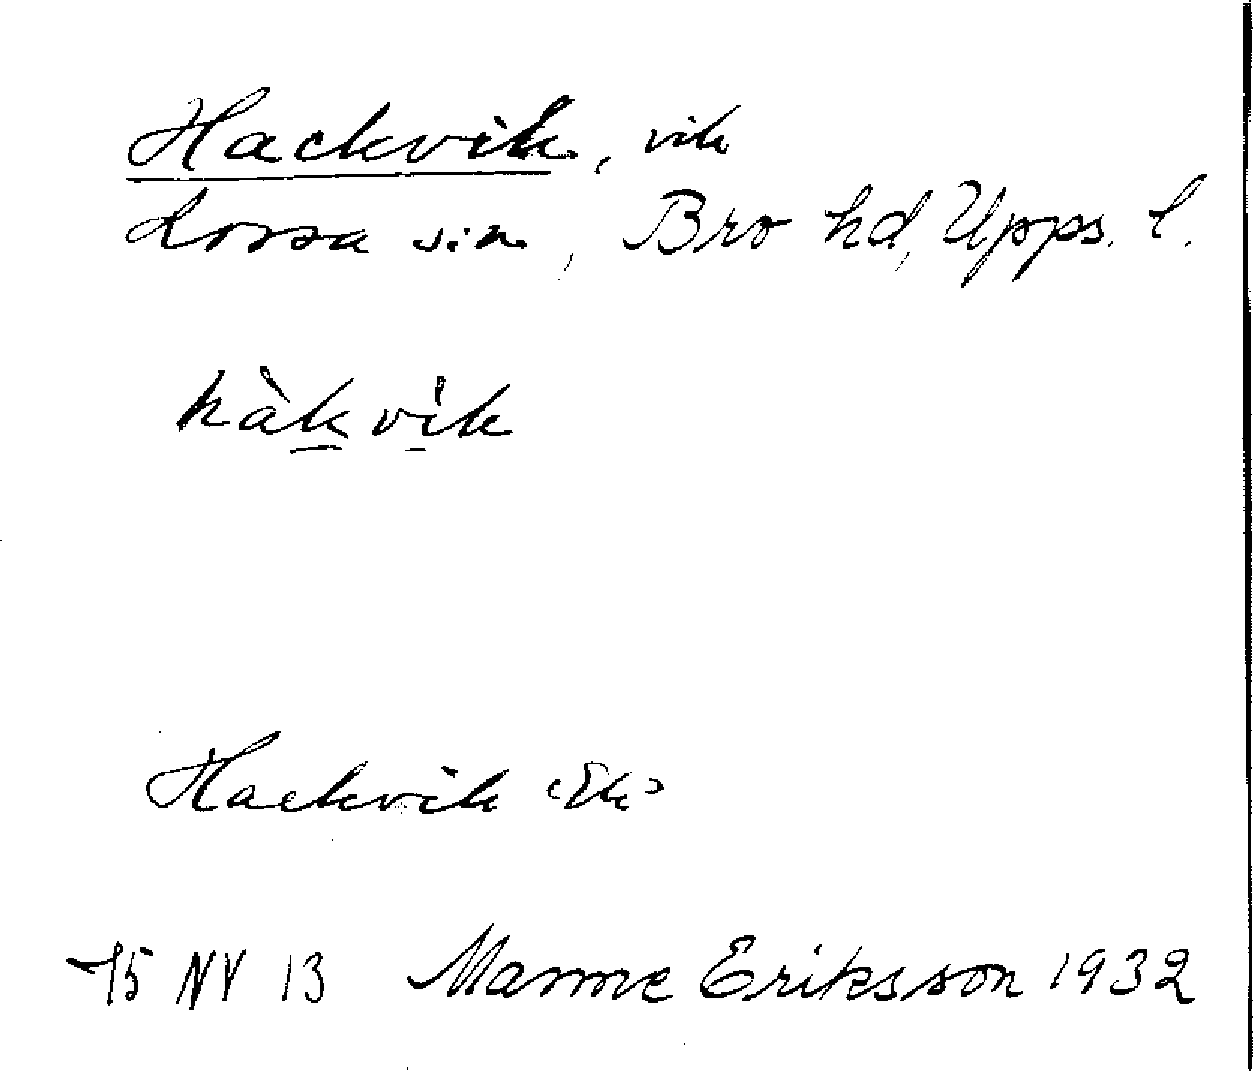 Hackvik, vik
Lossa sn, Bro hd, Upps. l.
hàkvik
Hackvik (Ek)
75 NV 13 Manne Eriksson 1932